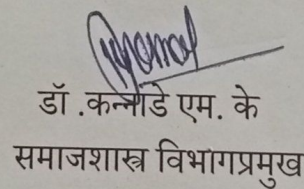 डॉ .कन्नाडे एम. के
समाजशास्त्र विभागप्रमुख